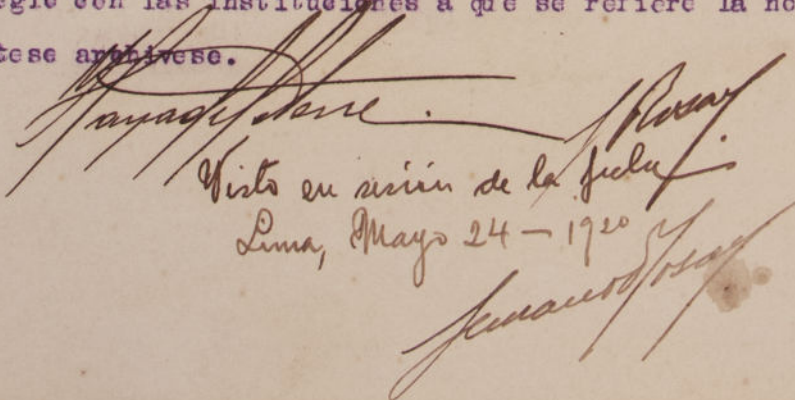 egle con las instituciones a que se refiere la no
tese archívese.
Haya de la Torre. J Rosay
Visto en sesión de la fecha
Lima, Mayo 24 - 1920
Rosay